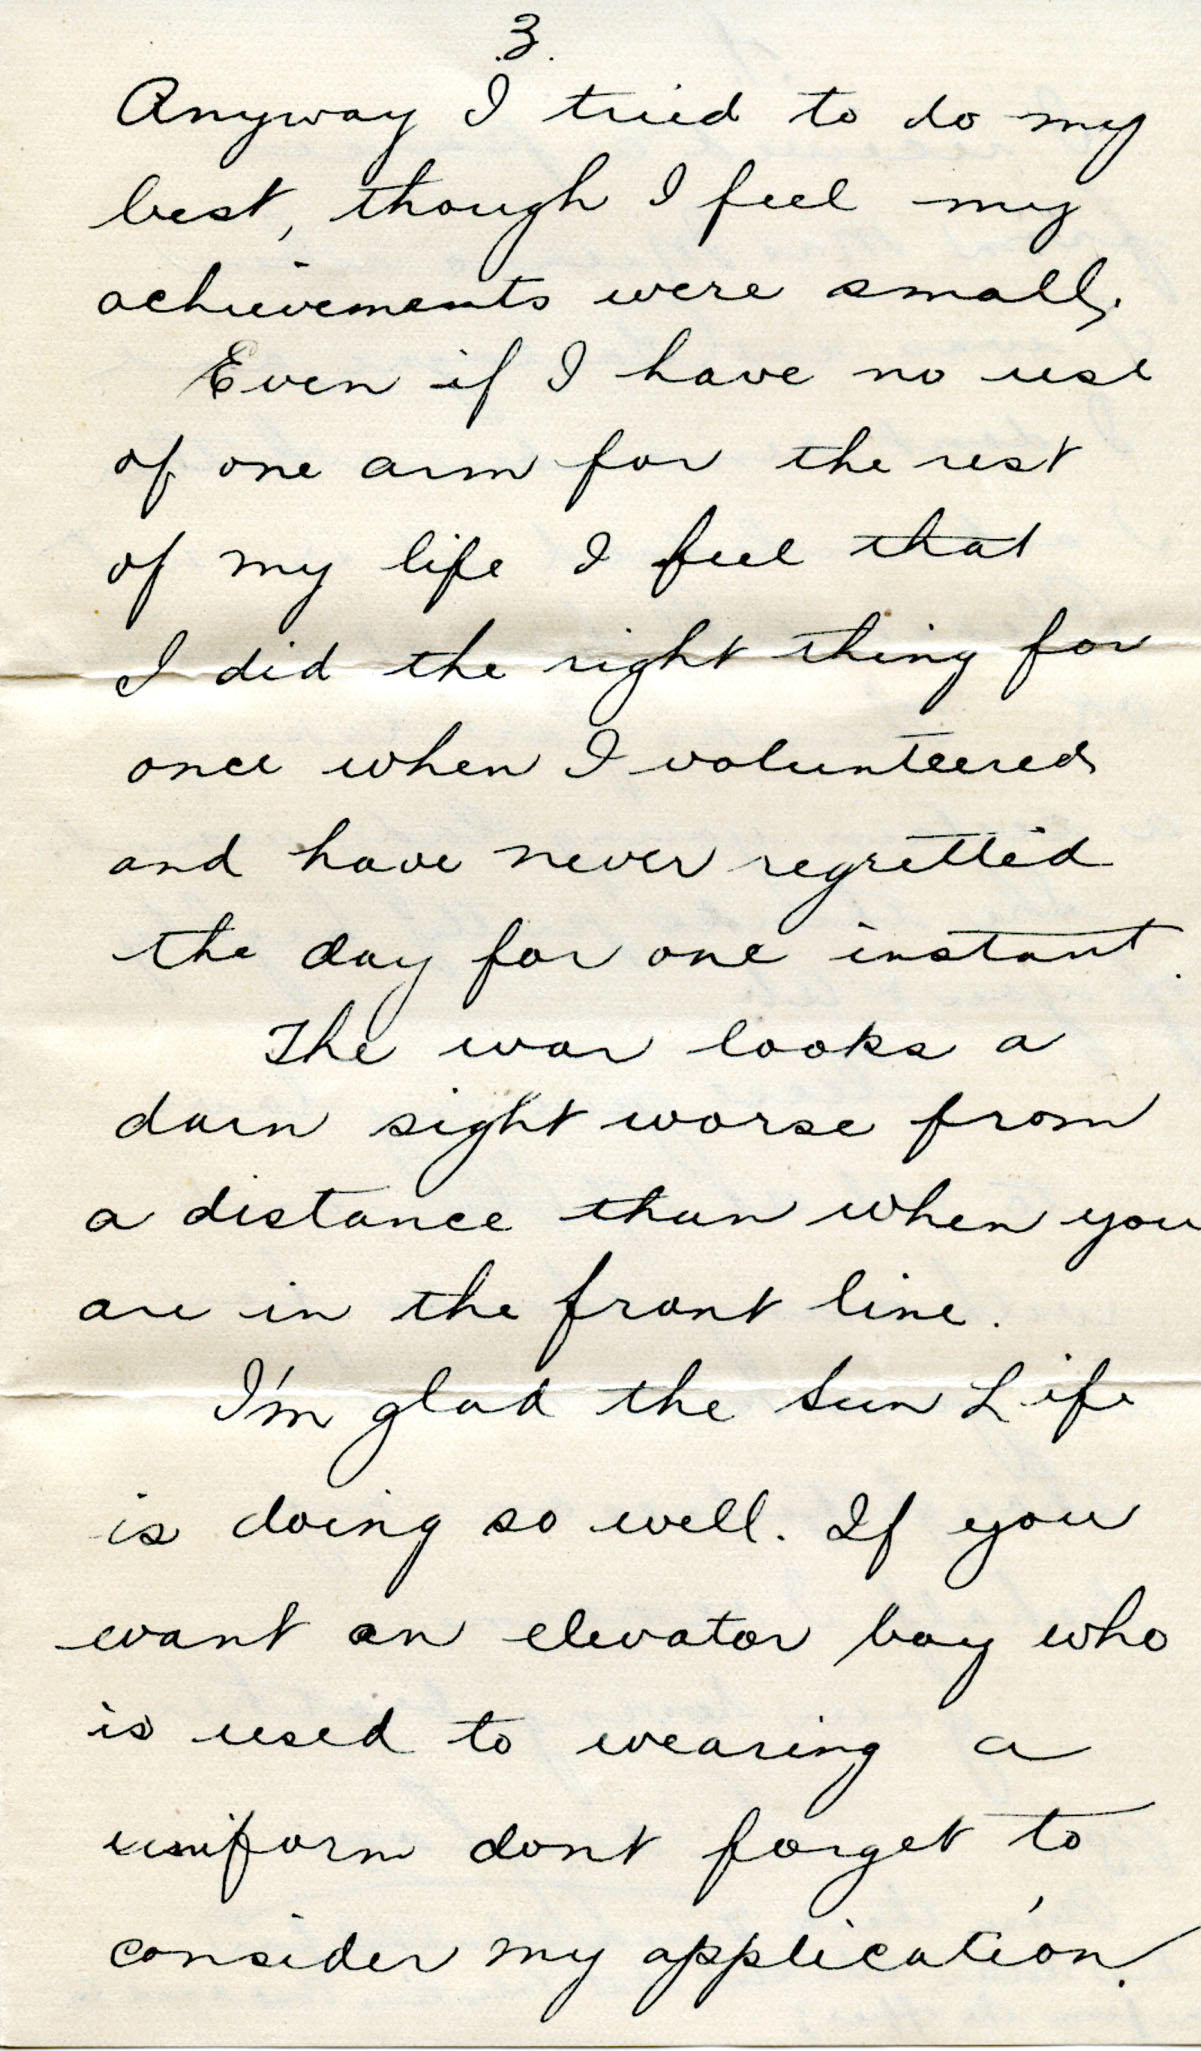 3.
Anyway I tried to do my
best, though I feel my
achievements were small.
Even if I have no use
of one arm for the rest
of my life I feel that
I did the right thing for
once when I volunteered
and have never regretted
the day for one instant.
The war looks a
darn sight worse from
a distance than when you
are in the front line.
I'm glad the Sun Life
is doing so well. If you
want an elevator boy who
is used to wearing a
uniform dont forget to
consider my application.